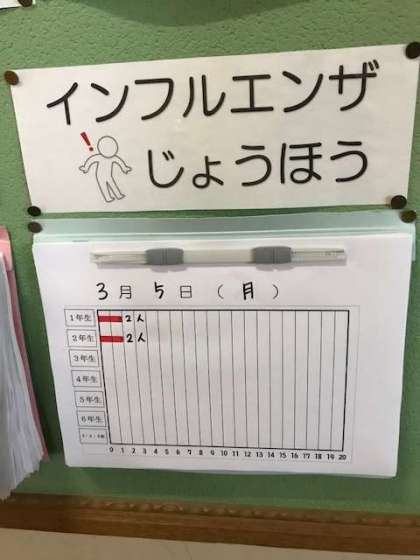 インフルエンザ
！
じょうほう
3月 5日（月）
1年生 2人
2年生 2人
3年生
4年生
5年生
6年生
0 1 2 3 4 5 6 7 8 9 10 11 12 13 14 15 16 17 18 19 20